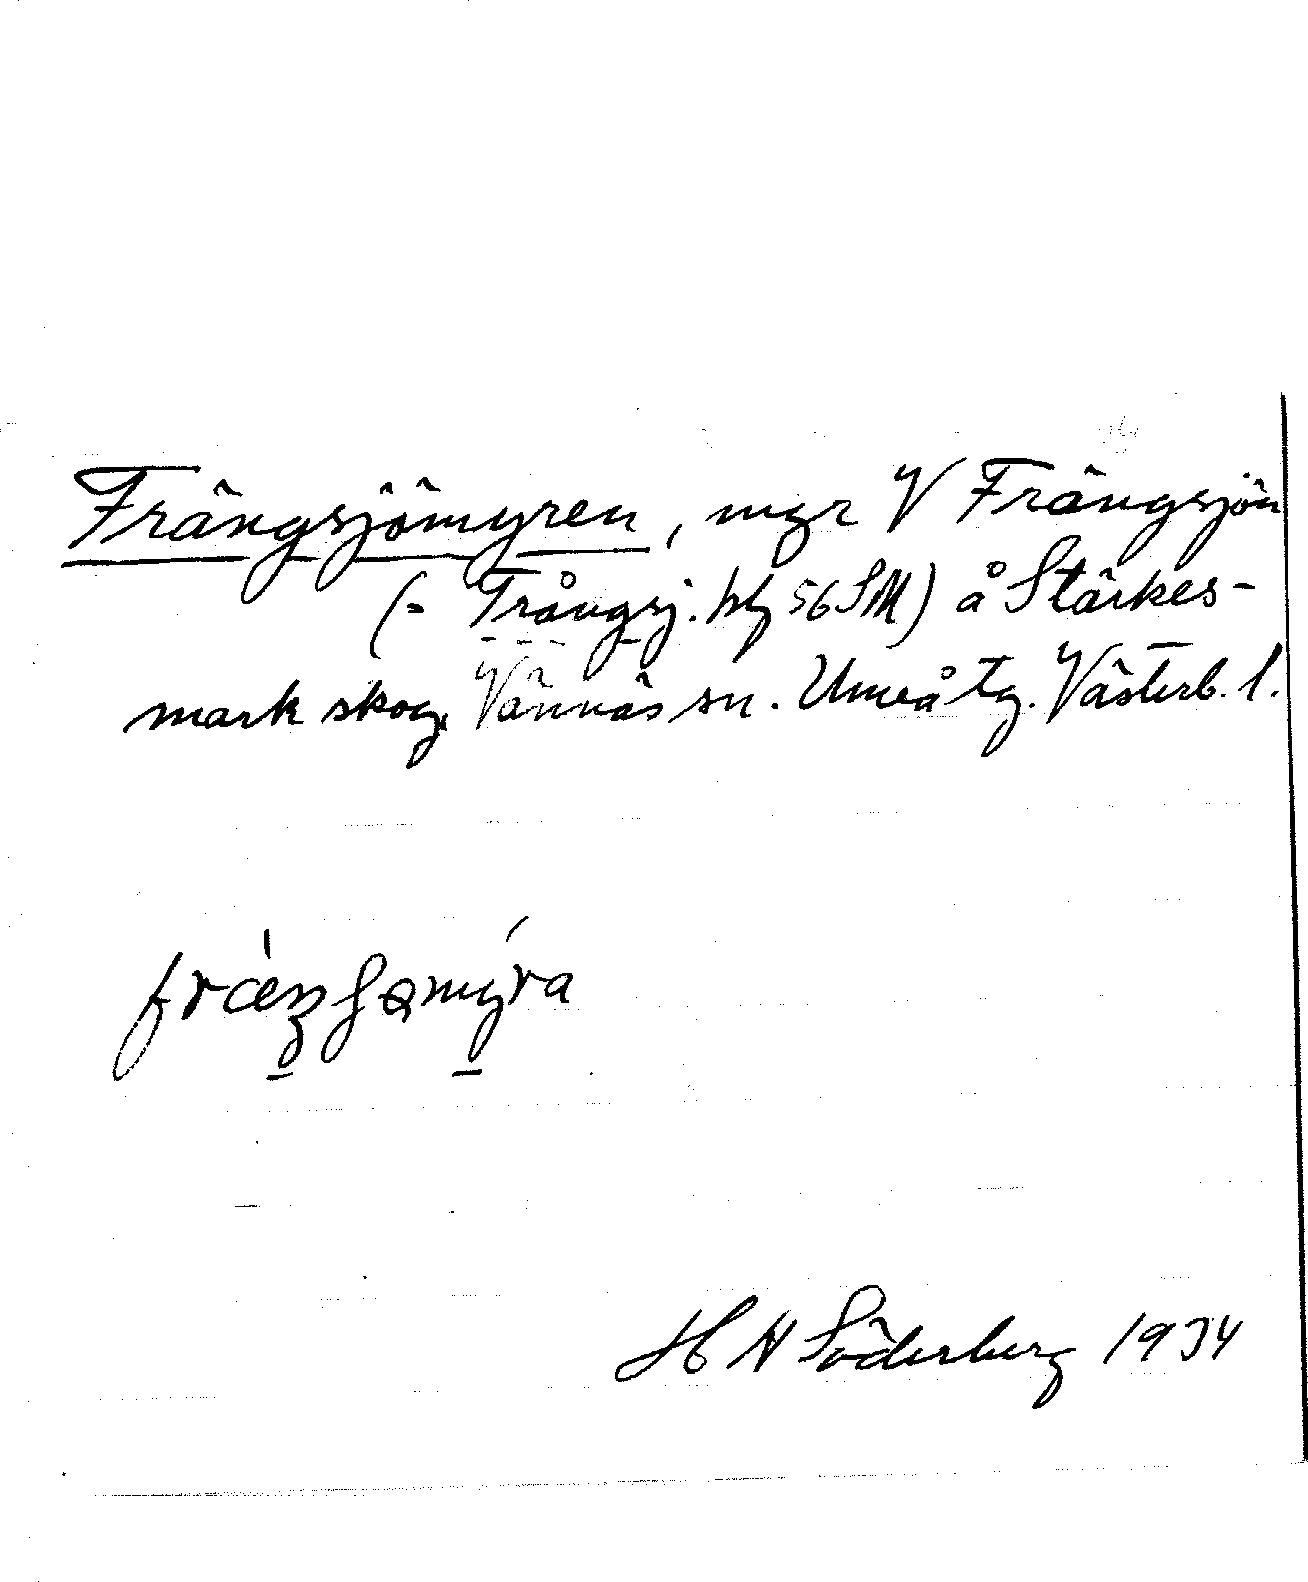 Frängsjömyren, mgr V Frängsjön
(= Trångsj. bl 56 SM) å Stärkes-
mark skog, Vännäs sn. Umeå tg. Västerb. l.
H N Söderberg 1934